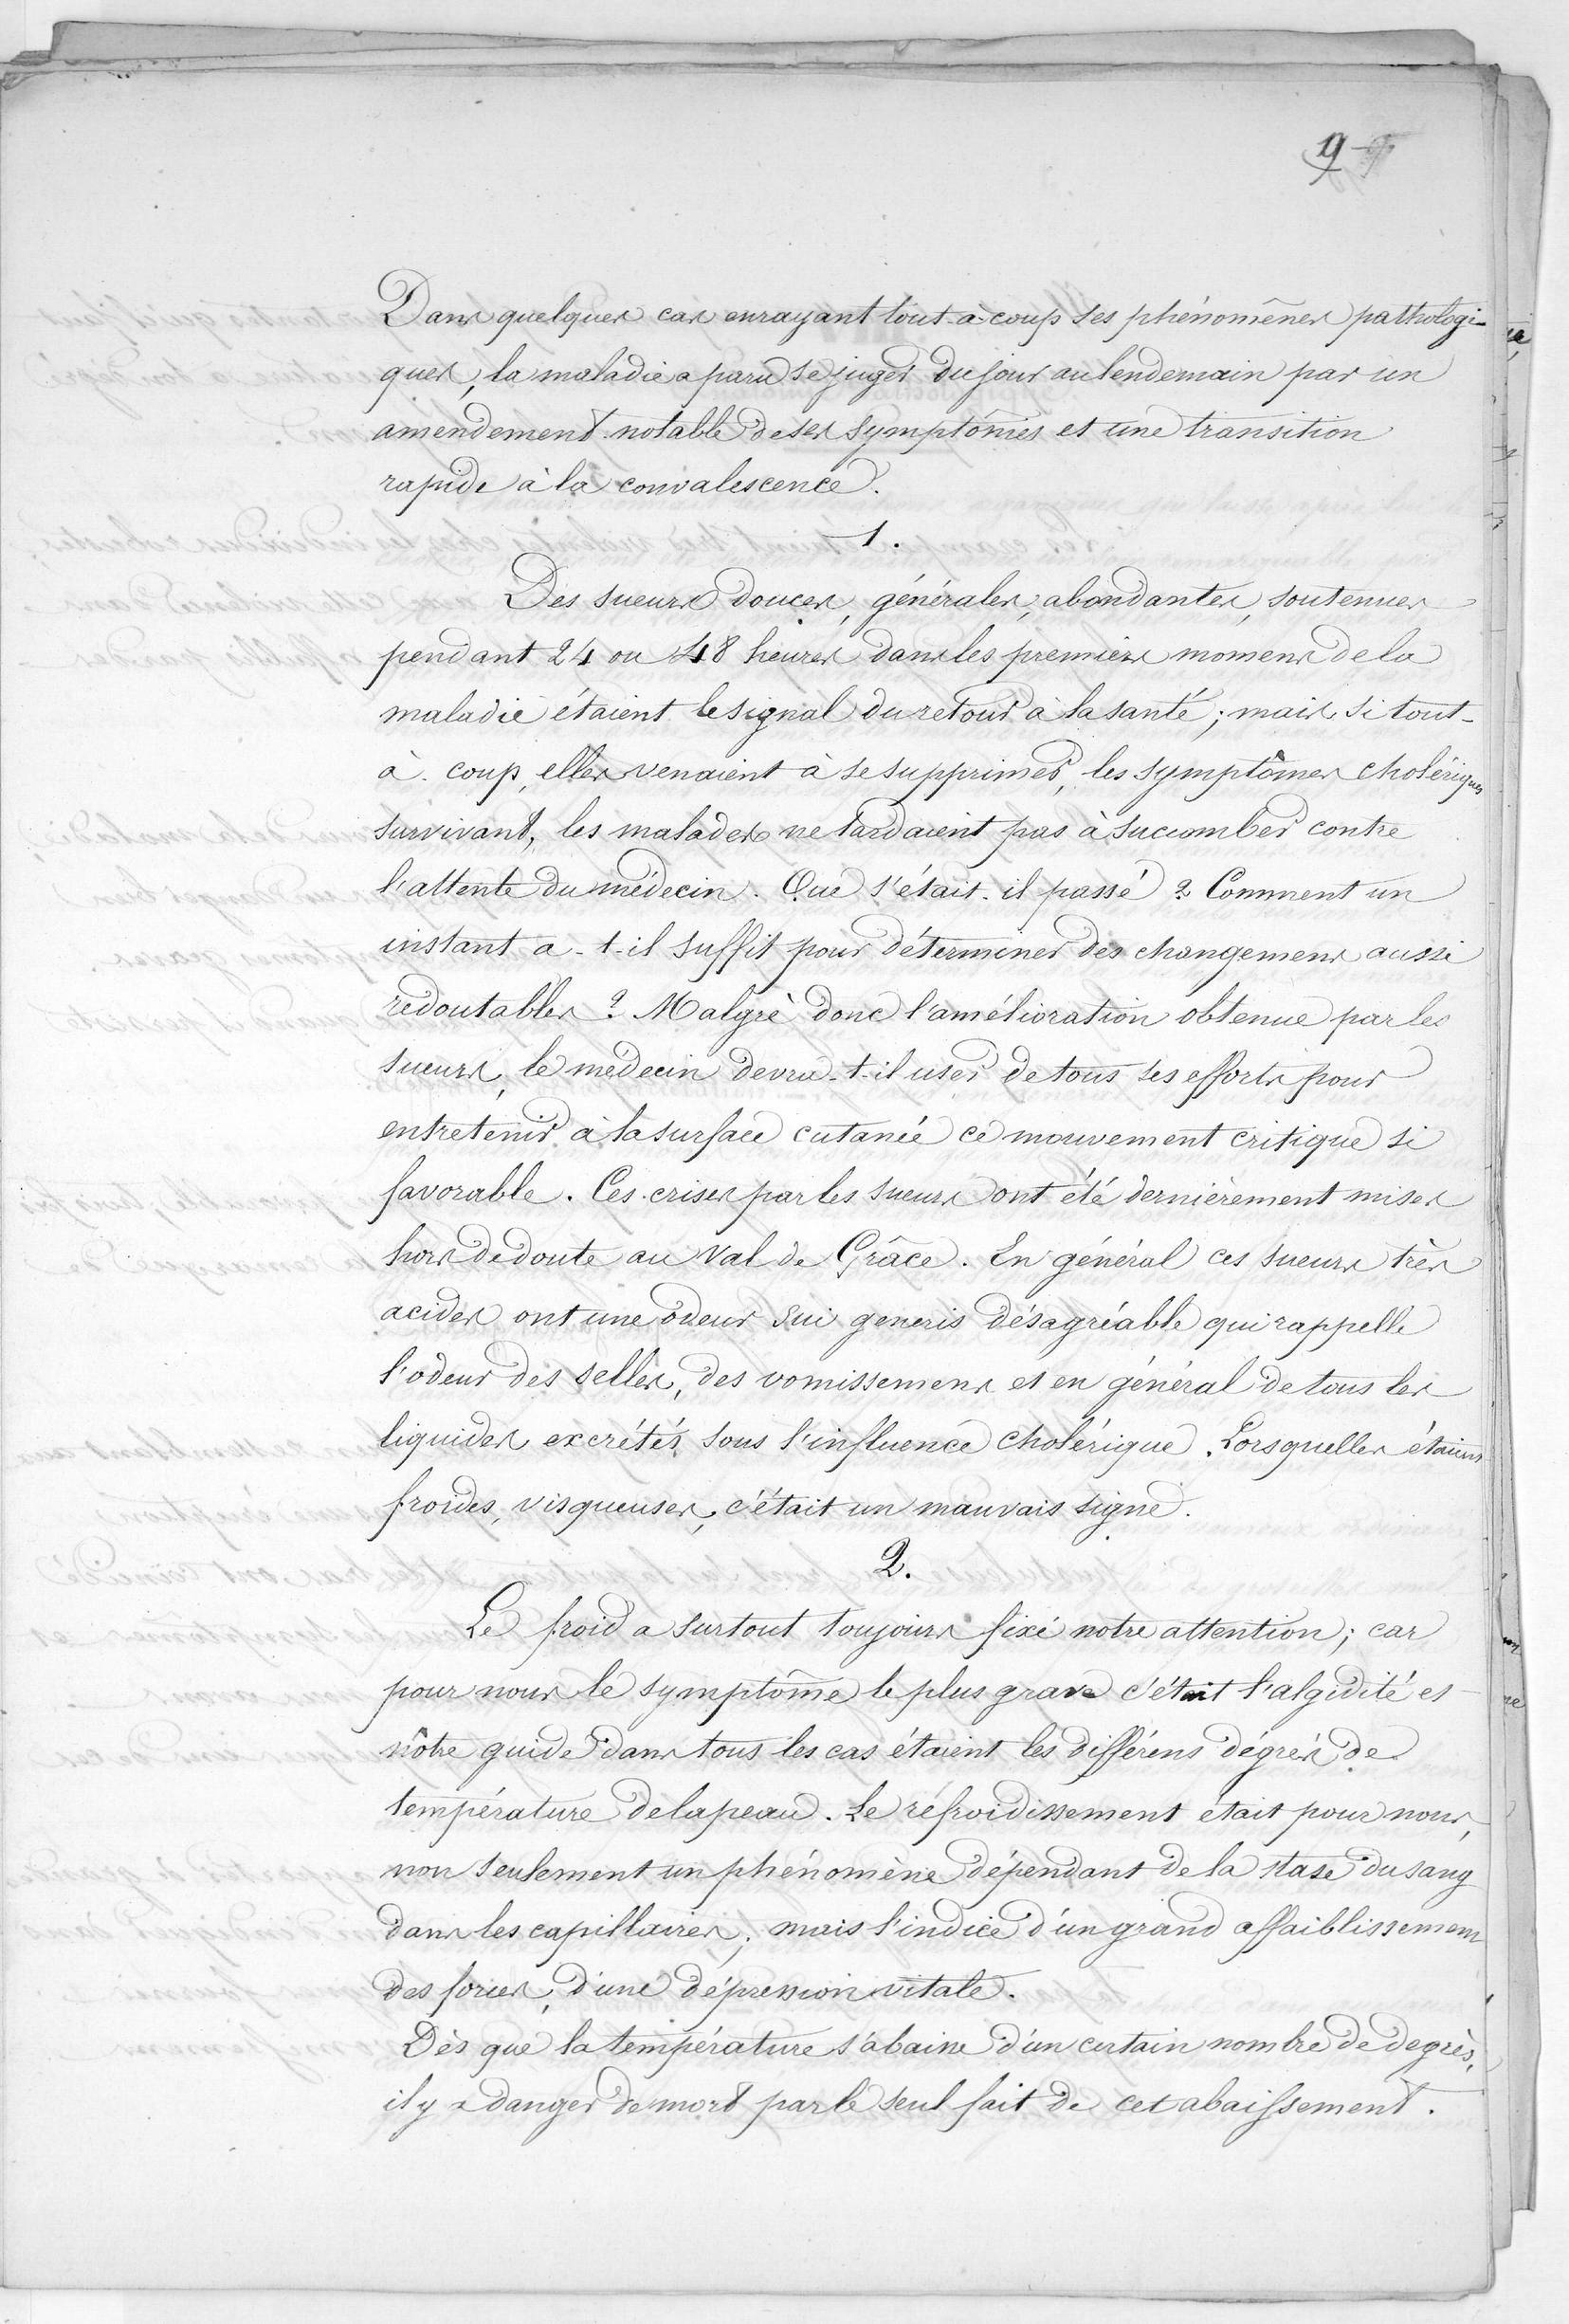 9
Dans quelques cas enrayant tout-à-coup ses phénomênes pathologi-
ques, la maladie a paru se juger du jour au lendemain par un
amendement notable de ses symptômes et une transition
rapide à la convalescence.
1.
Des sueurs douces, générales, abondantes, soutenues
pendant 24 ou 48 heures dans les premiers momens de la
maladie étaient le signal du retour à la santé; mais si tout-
à-coup, elles venaient à se supprimer, les symptômes cholériques
survivant, les malades ne tardaient pas à succomber contre
l'attente du médecin. Que s'était-il passé? Comment un
instant a-t-il suffit pour déterminer des changemens aussi
redoutables? Malgrè donc l'amélioration obtenue par les
sueurs, le médecin devra-t-il user de tous ses efforts pour
entretenir à la surface cutanée ce mouvement critique si
favorable. Ces crises par les sueurs ont été dernièrement mises
hors de doute au Val de Grâce. En général ces sueurs très
acides ont une odeur sui generis désagréable qui rappelle
l'odeur des selles, des vomissemens et en général de tous les
liquides excrétés sous l'influence cholérique. Lorsquelles étaient
froides, visqueuses, c'était un mauvais signe.
2.
Le froid a surtout toujours fixé notre attention; car
pour nous le symptôme le plus grave c'était l'algidité et
nôtre guide dans tous les cas étaient les différens dégrés de
température de la peau. Le réfroidissement était pour nous,
non seulement un phénomène dépendant de la stase du sang
dans les capillaires; mais l'indice d'un grand affaiblissement
des forces, d'une dépression vitale.
Dès que la température s'abaisse d'un certain nombre de degrès,
il y a danger de mort par le seul fait de cet abaissement.